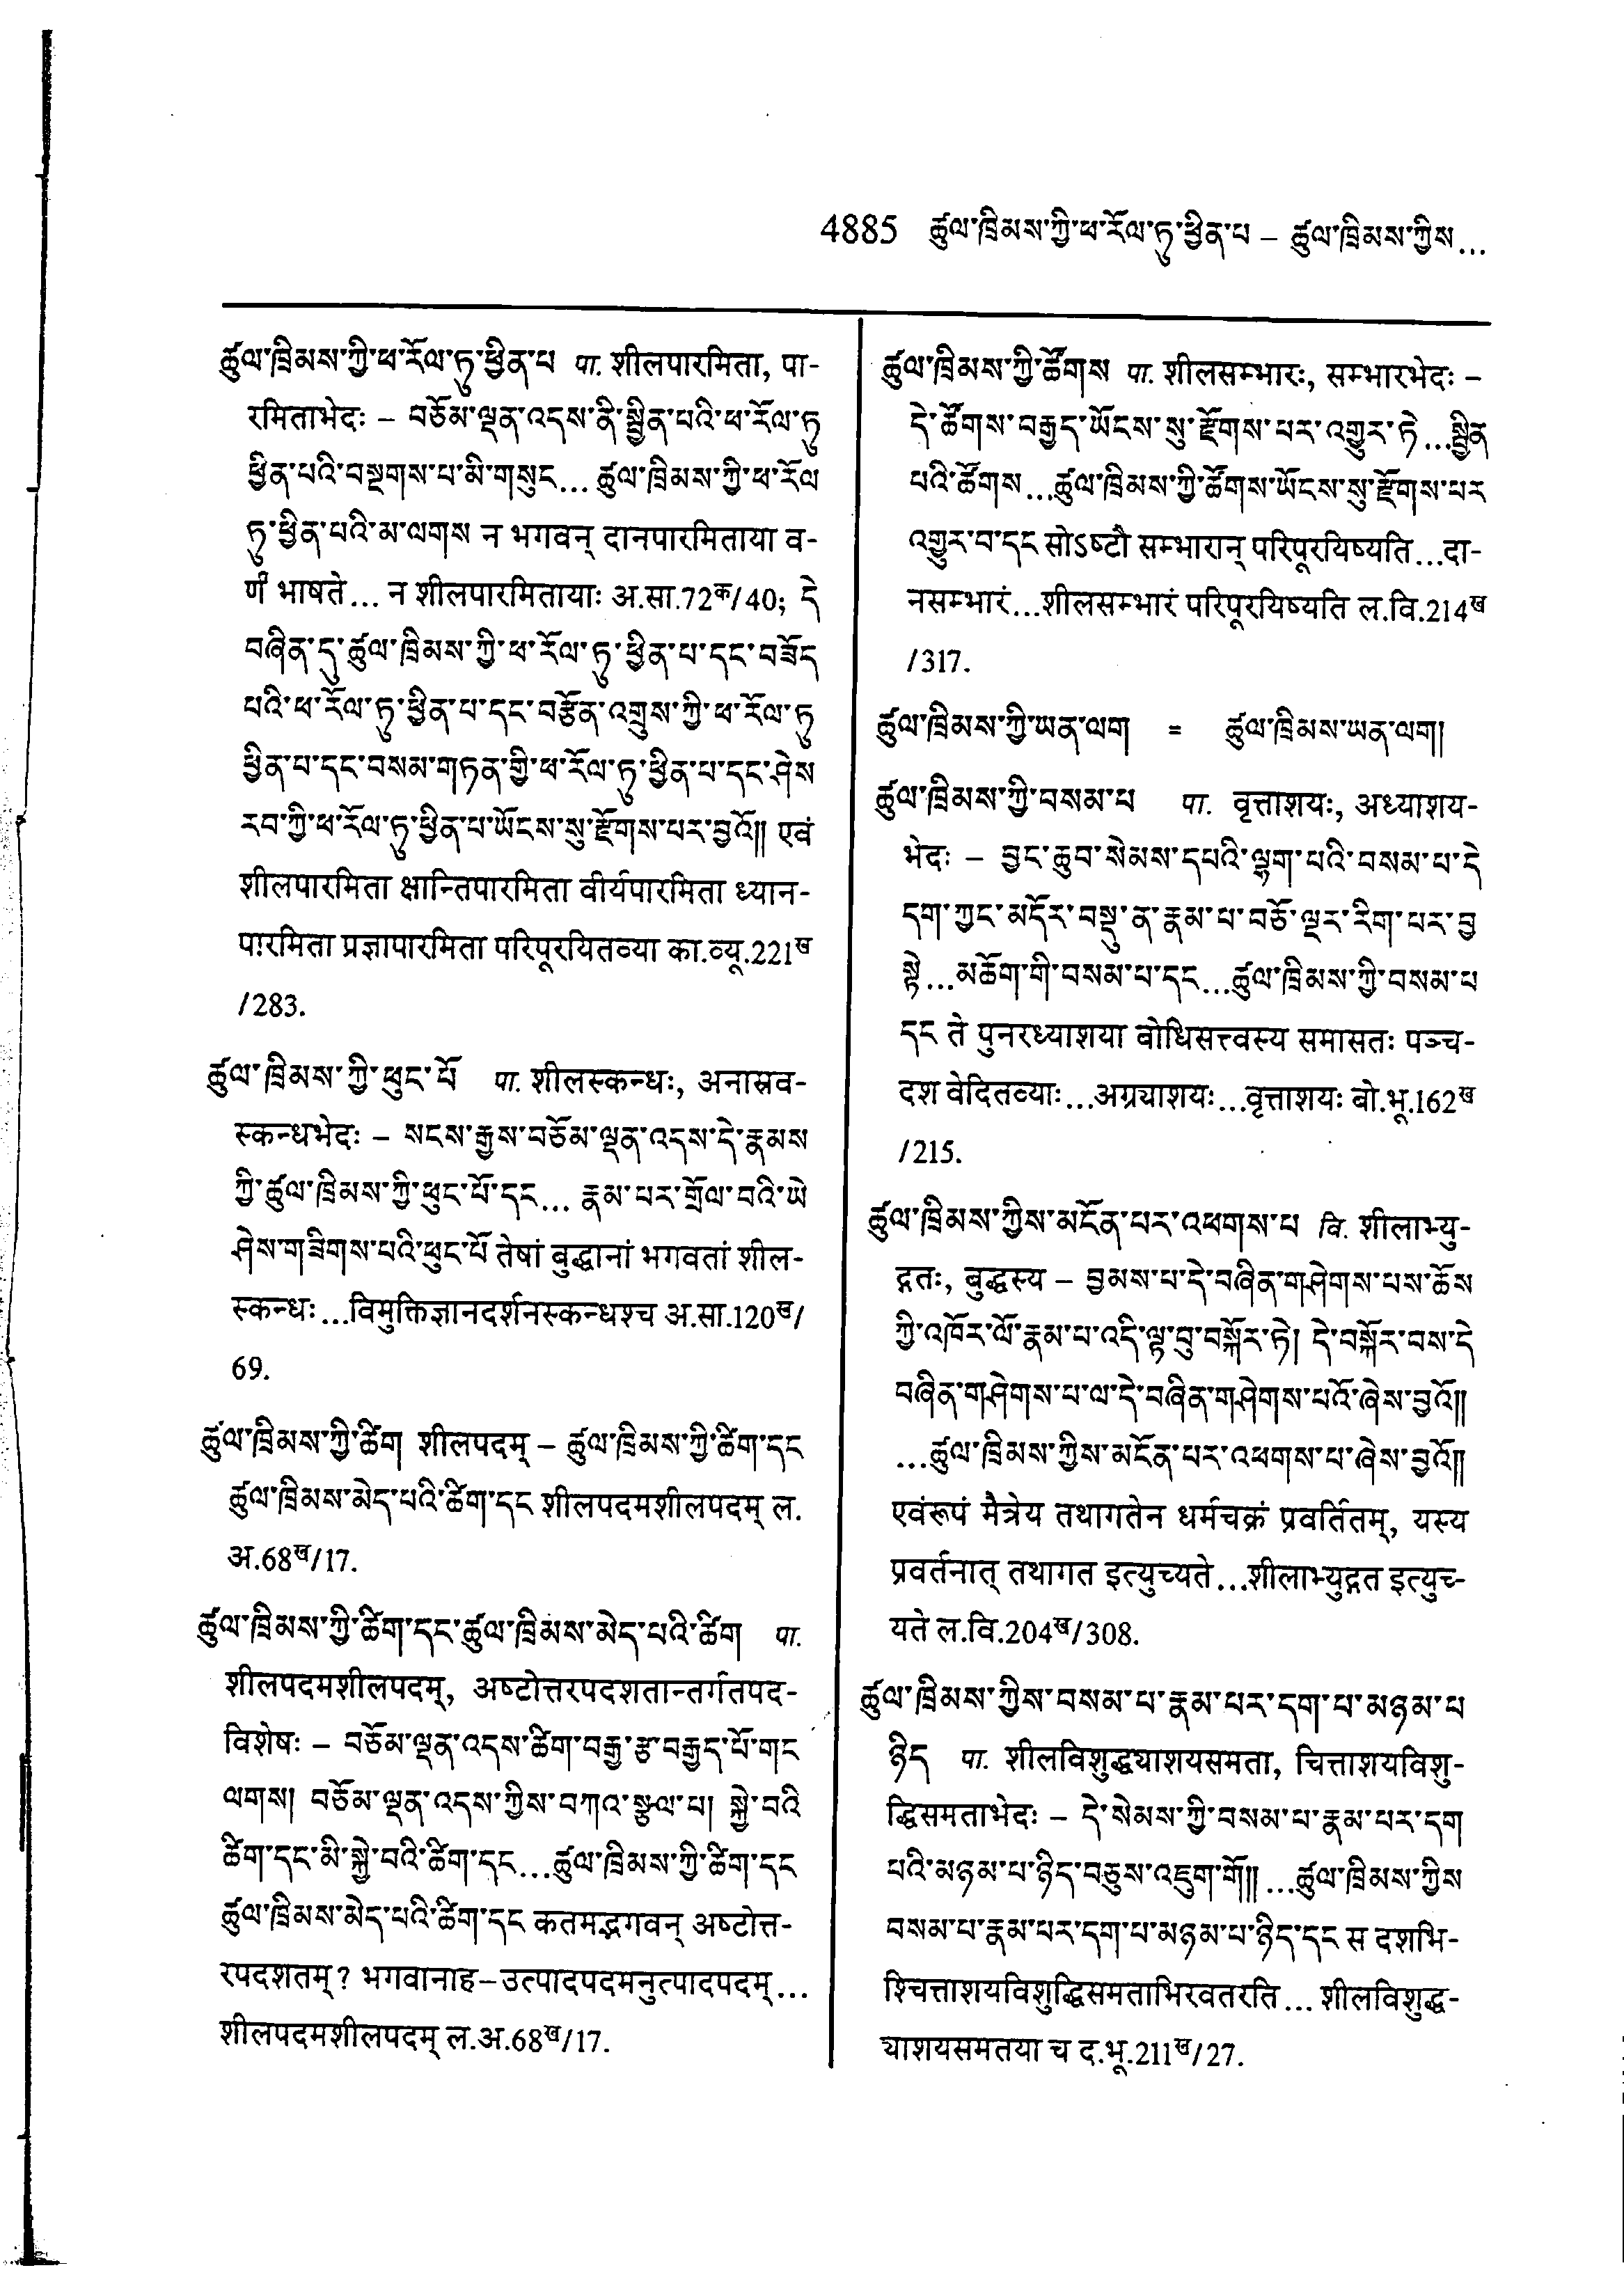 4885 ཚུལ་ཁྲིམས་ཀྱི་ཕ་རོལ་ཏུ་ཕྱིན་པ – ཚུལ་ཁྲིམས་ཀྱིས...
ཚུལ་ཁྲིམས་ཀྱི་ཕ་རོལ་ཏུ་ཕྱིན་པ पा. शीलपारमिता, पा-
रमिताभेदः – བཅོམ་ལྡན་འདས་ནི་སྦྱིན་པའི་ཕ་རོལ་ཏུ
ཕྱིན་པའི་བསྔགས་པ་མི་གསུང... ཚུལ་ཁྲིམས་ཀྱི་ཕ་རོལ
ཏུ་ཕྱིན་པའི་མ་ལགས न भगवन् दानपारमिताया व-
र्णं भाषते... न शीलपारमितायाः अ.सा.72क/40; དེ
བཞིན་དུ་ཚུལ་ཁྲིམས་ཀྱི་ཕ་རོལ་ཏུ་ཕྱིན་པ་དང་བཟོད
པའི་ཕ་རོལ་ཏུ་ཕྱིན་པ་དང་བརྩོན་འགྲུས་ཀྱི་ཕ་རོལ་ཏུ
ཕྱིན་པ་དང་བསམ་གཏན་གྱི་ཕ་རོལ་ཏུ་ཕྱིན་པ་དང་ཤེས
རབ་ཀྱི་ཕ་རོལ་ཏུ་ཕྱིན་པ་ཡོངས་སུ་རྫོགས་པར་བྱའོ།། एवं
शीलपारमिता क्षान्तिपारमिता वीर्यपारमिता ध्यान-
पारमिता प्रज्ञापारमिता परिपूरयितव्या का.व्यू.221ख
/283.
ཚུལ་ཁྲིམས་ཀྱི་ཕུང་པོ पा. शीलस्कन्धः, अनास्रव-
स्कन्धभेदः – སངས་རྒྱས་བཅོམ་ལྡན་འདས་དེ་རྣམས
ཀྱི་ཚུལ་ཁྲིམས་ཀྱི་ཕུང་པོ་དང... རྣམ་པར་གྲོལ་བའི་ཡེ
ཤེས་གཟིགས་པའི་ཕུང་པོ तेषां बुद्धानां भगवतां शील-
स्कन्धः...विमुक्तिज्ञानदर्शनस्कन्धश्च अ.सा.120ख/
69.
ཚུལ་ཁྲིམས་ཀྱི་ཚིག शीलपदम् – ཚུལ་ཁྲིམས་ཀྱི་ཚིག་དང
ཚུལ་ཁྲིམས་མེད་པའི་ཚིག་དང शीलपदमशीलपदम् ल.
अ.68ख/17.
ཚུལ་ཁྲིམས་ཀྱི་ཚིག་དང་ཚུལ་ཁྲིམས་མེད་པའི་ཚིག पा.
शीलपदमशीलपदम्, अष्टोत्तरपदशतान्तर्गतपद-
विशेषः – བཅོམ་ལྡན་འདས་ཚིག་བརྒྱ་རྩ་བརྒྱད་པོ་གང
ལགས། བཅོམ་ལྡན་འདས་ཀྱིས་བཀའ་སྩལ་པ། སྐྱེ་བའི
ཚིག་དང་མི་སྐྱེ་བའི་ཚིག་དང...ཚུལ་ཁྲིམས་ཀྱི་ཚིག་དང
ཚུལ་ཁྲིམས་མེད་པའི་ཚིག་དང कतमद्भगवन् अष्टोत्त-
रपदशतम्? भगवानाह–उत्पादपदमनुत्पादपदम्...
शीलपदमशीलपदम् ल.अ.68ख/17.
ཚུལ་ཁྲིམས་ཀྱི་ཚོགས पा. शीलसम्भारः, सम्भारभेदः –
དེ་ཚོགས་བརྒྱད་ཡོངས་སུ་རྫོགས་པར་འགྱུར་ཏེ...སྦྱིན
པའི་ཚོགས...ཚུལ་ཁྲིམས་ཀྱི་ཚོགས་ཡོངས་སུ་རྫོགས་པར
འགྱུར་བ་དང सोऽष्टौ सम्भारान् परिपूरयिष्यति...दा-
नसम्भारं...शीलसम्भारं परिपूरयिष्यति ल.वि.214ख
/317.
ཚུལ་ཁྲིམས་ཀྱི་ཡན་ལག = ཚུལ་ཁྲིམས་ཡན་ལག།
ཚུལ་ཁྲིམས་ཀྱི་བསམ་པ पा. वृत्ताशयः, अध्याशय-
भेदः – བྱང་ཆུབ་སེམས་དཔའི་ལྷག་པའི་བསམ་པ་དེ
དག་ཀྱང་མདོར་བསྡུ་ན་རྣམ་པ་བཅོ་ལྔར་རིག་པར་བྱ
སྟེ...མཆོག་གི་བསམ་པ་དང...ཚུལ་ཁྲིམས་ཀྱི་བསམ་པ
དང ते पुनरध्याशया बोधिसत्त्वस्य समासतः पञ्च-
दश वेदितव्याः...अग्र्याशयः...वृत्ताशयः बो.भू.162ख
/215.
ཚུལ་ཁྲིམས་ཀྱིས་མངོན་པར་འཕགས་པ वि. शीलाभ्यु-
द्गतः, बुद्धस्य – བྱམས་པ་དེ་བཞིན་གཤེགས་པས་ཆོས
ཀྱི་འཁོར་ལོ་རྣམ་པ་འདི་ལྟ་བུ་བསྐོར་ཏེ། དེ་བསྐོར་བས་དེ
བཞིན་གཤེགས་པ་ལ་དེ་བཞིན་གཤེགས་པའོ་ཞེས་བྱའོ།།
...ཚུལ་ཁྲིམས་ཀྱིས་མངོན་པར་འཕགས་པ་ཞེས་བྱའོ།།
एवंरूपं मैत्रेय तथागतेन धर्मचक्रं प्रवर्तितम्, यस्य
प्रवर्तनात् तथागत इत्युच्यते...शीलाभ्युद्गत इत्युच्-
यते ल.वि.204ख/308.
ཚུལ་ཁྲིམས་ཀྱིས་བསམ་པ་རྣམ་པར་དག་པ་མཉམ་པ
ཉིད पा. शीलविशुद्ध्याशयसमता, चित्ताशयविशु-
द्धिसमताभेदः – དེ་སེམས་ཀྱི་བསམ་པ་རྣམ་པར་དག
པའི་མཉམ་པ་ཉིད་བཅུས་འཇུག་གོ།། ...ཚུལ་ཁྲིམས་ཀྱིས
བསམ་པ་རྣམ་པར་དག་པ་མཉམ་པ་ཉིད་དང स दशभि-
श्चित्ताशयविशुद्धिसमताभिरवतरति... शीलविशुद्ध-
्याशयसमतया च द.भू.211ख/27.